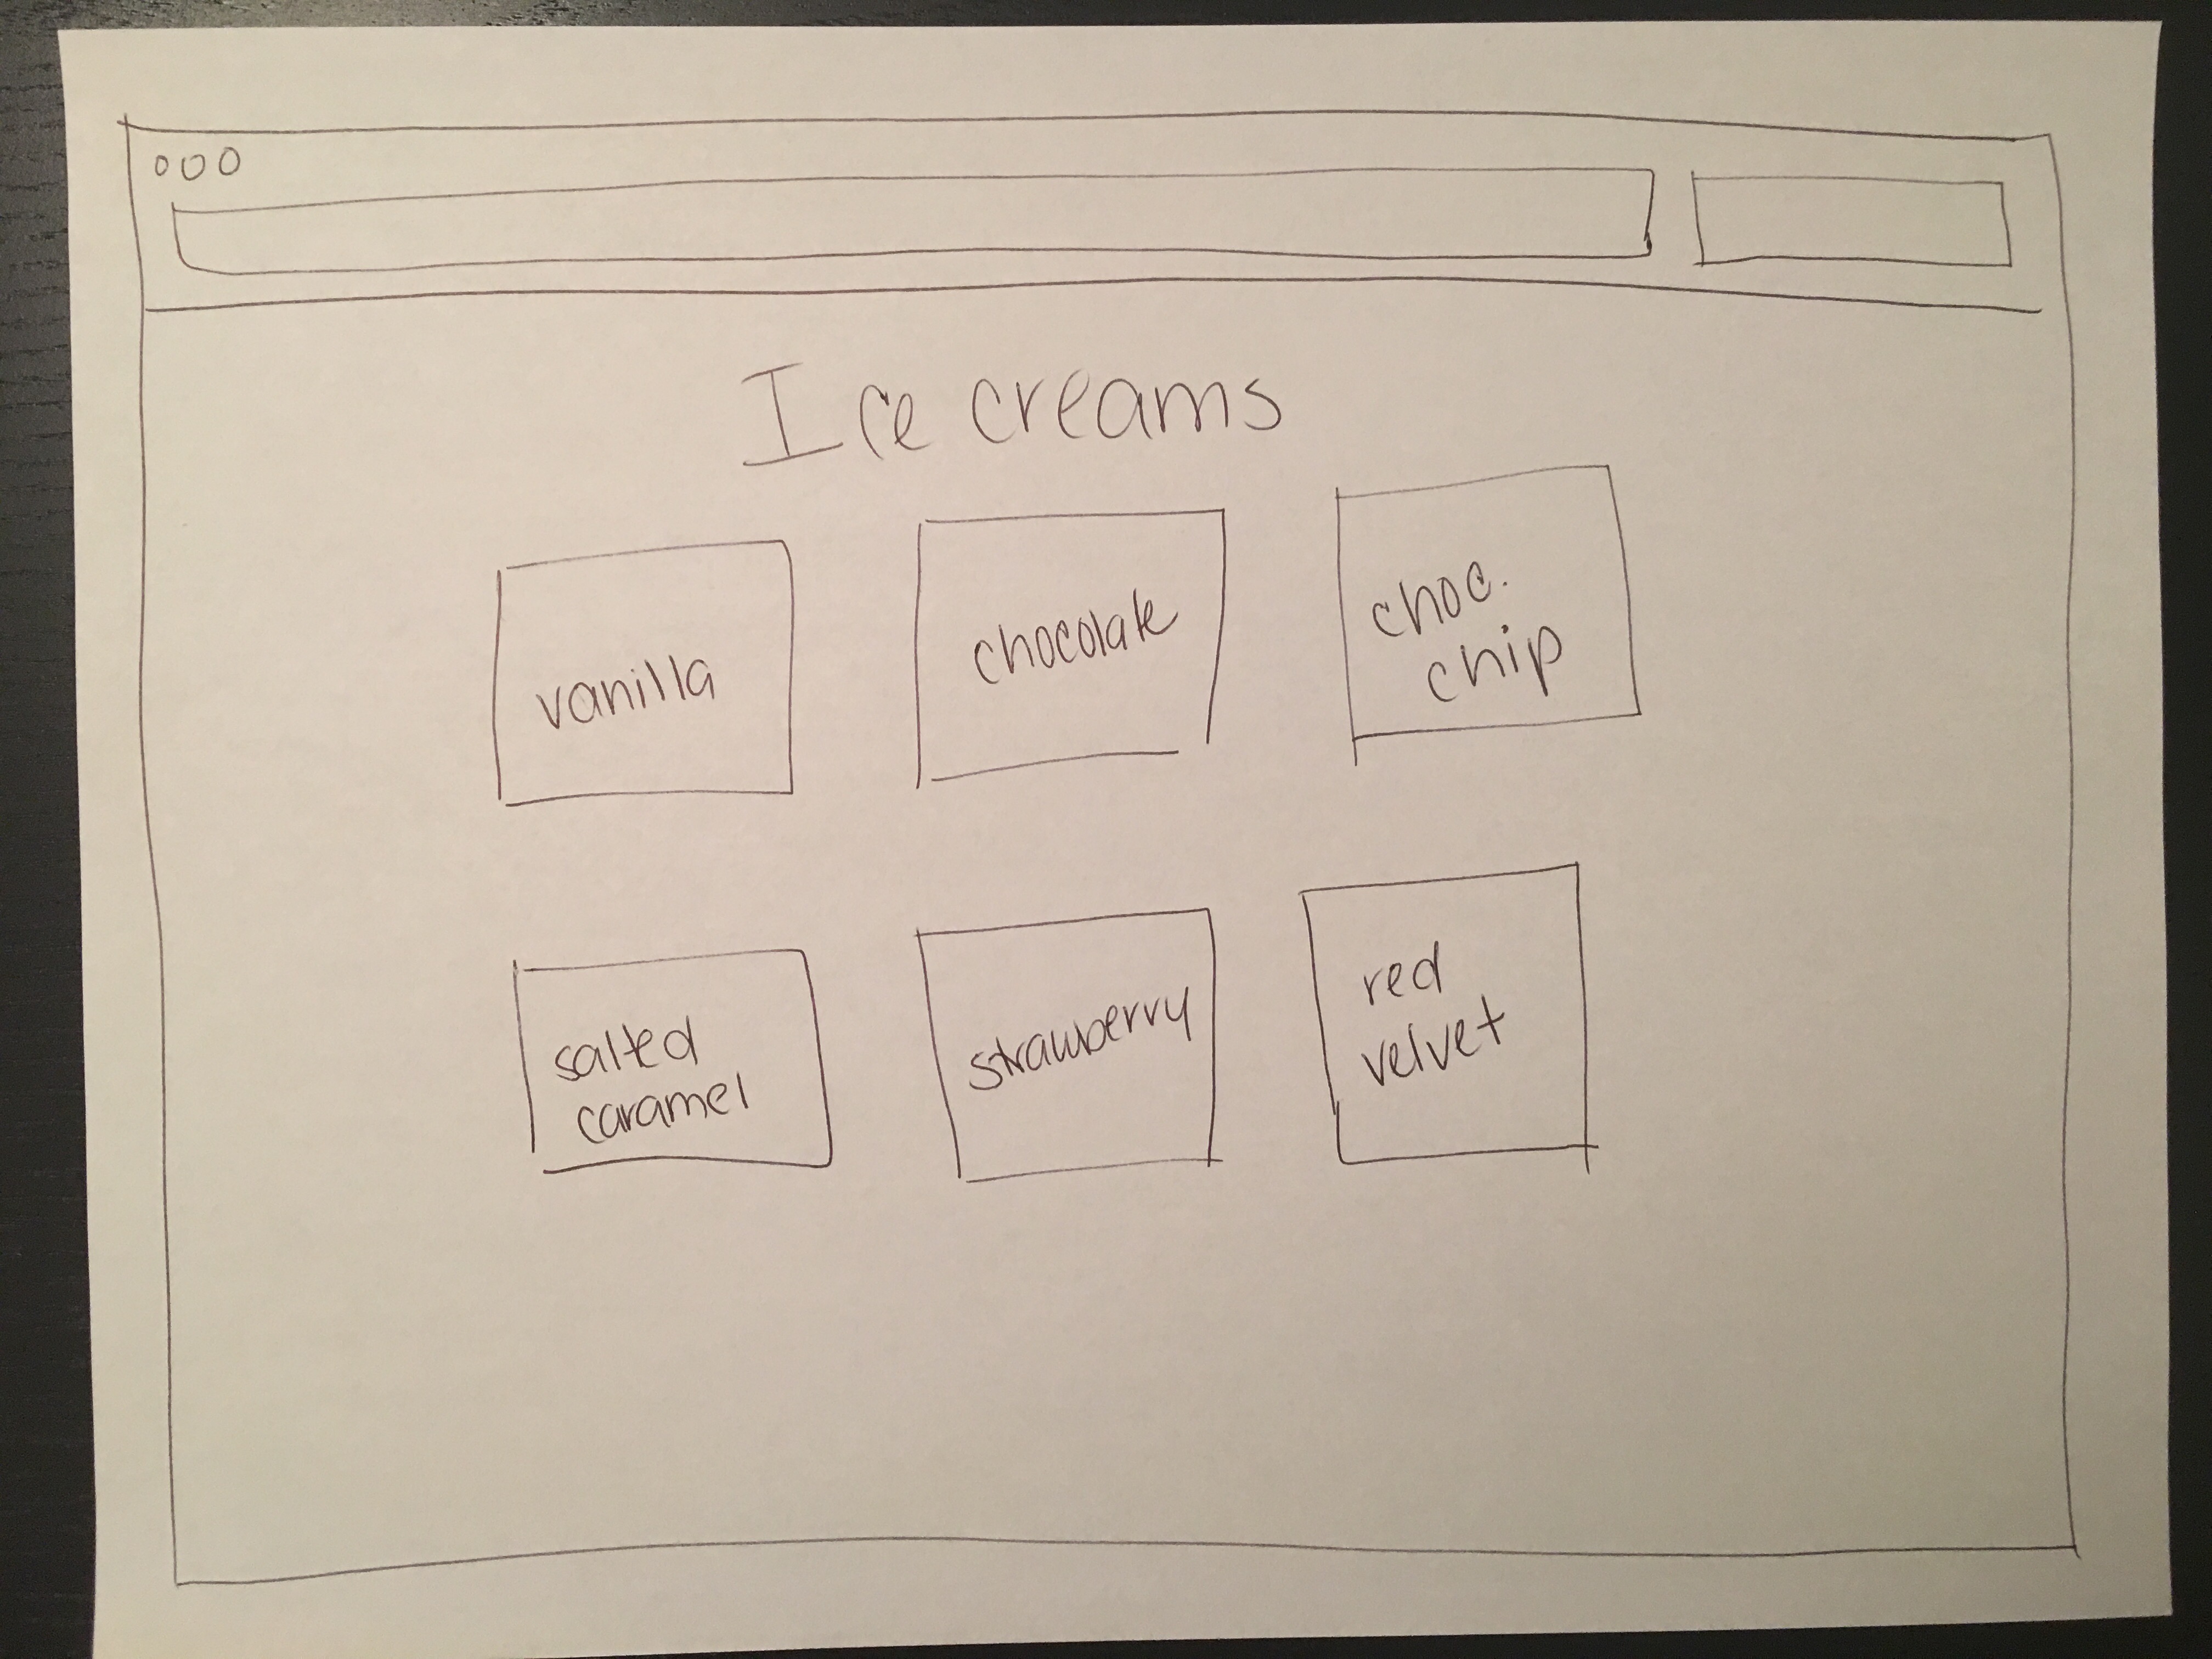 Ice creams
vanilla
chocolate
choc.
chip
salted
caramel
strawberry
red
velvet